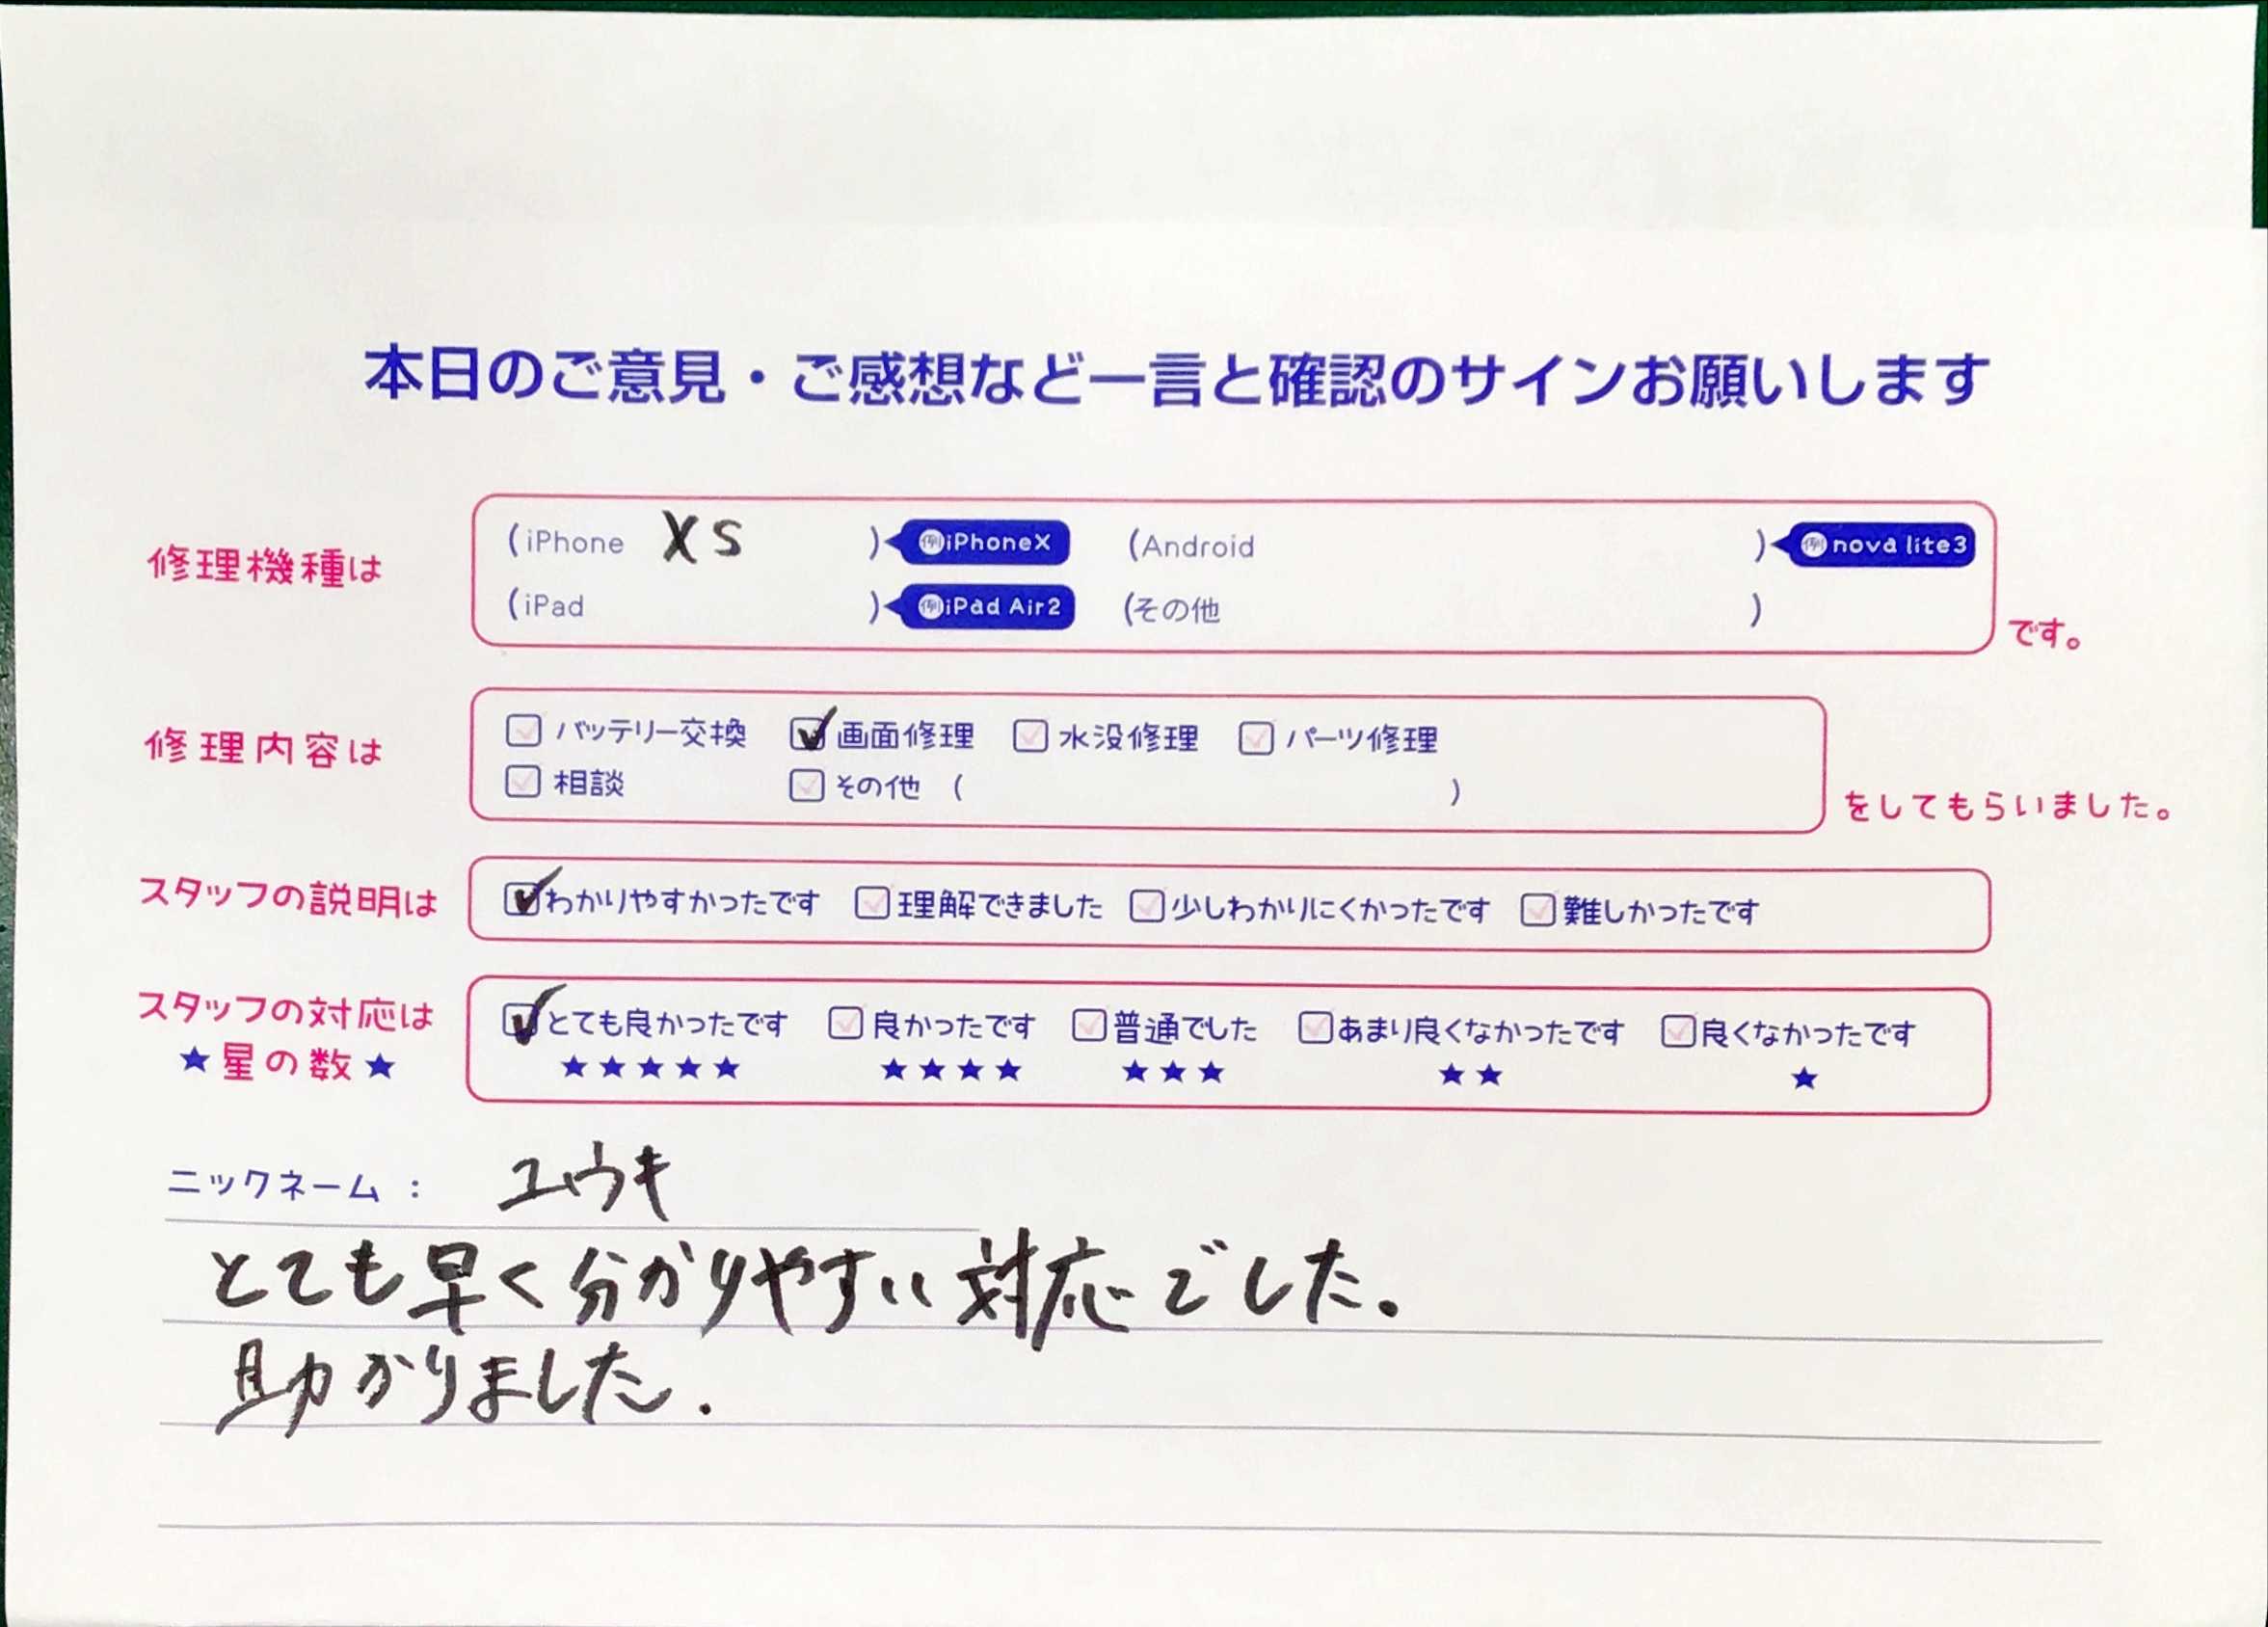 本日のご意見・ご感想など一言と確認のサインお願いします
修理機種は
(iPhone XS ) 例iPhoneX (Android ) 例nova lite3
(iPad ) 例iPad Air2 (その他 )
です。
修理内容は
バッテリー交換 画面修理 水没修理 パーツ修理
相談 その他 ( )
をしてもらいました。
スタッフの説明は わかりやすかったです 理解できました 少しわかりにくかったです 難しかったです
スタッフの対応は とても良かったです 良かったです 普通でした あまり良くなかったです 良くなかったです
★星の数★ ★★★★★ ★★★★ ★★★ ★★ ★
ニックネーム： ユウキ
とても早く分かりやすい対応でした。
助かりました.